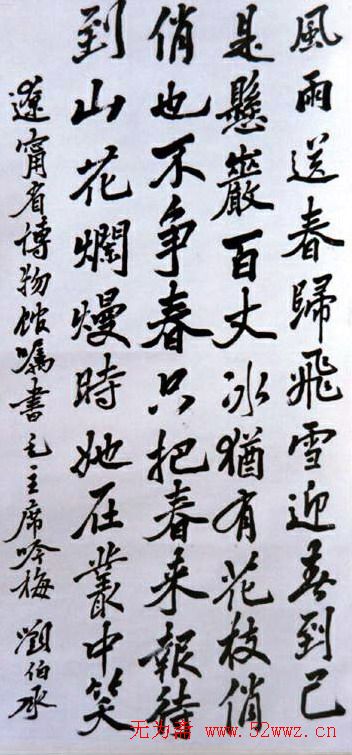 風雨送春歸飛雪迎春到已
是懸巖百丈冰猶有花枝俏
俏也不爭春只把春來報待
到山花爛熳時她在叢中笑
遼甯省博物館囑書毛主席吟梅 劉伯承
无为斋 www.52wwz.cn